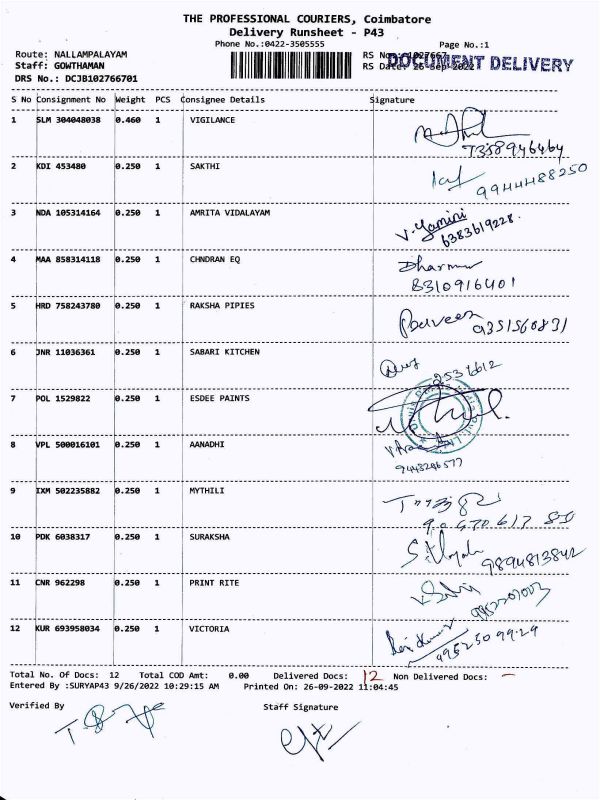 THE PROFESSIONAL COURIERS, Coimbatore
Delivery Runsheet - P43
Phone No.:0422-3505555
Page No.:1
Route: NALLAMPALAYAM
RS No.: 1027667
Staff: GOWTHAMAN
RS Date: 26-Sep-2022
DOCUMENT DELIVERY
DRS No.: DCJB102766701
S No Consignment No Weight PCS Consignee Details Signature
1 SLM 304048038 0.460 1 VIGILANCE
7358946464
2 KDI 453480 0.250 1 SAKTHI
9944488250
3 NDA 105314164 0.250 1 AMRITA VIDALAYAM
V. Yamini
6383619228.
4 MAA 858314118 0.250 1 CHNDRAN EQ
8310916401
5 HRD 758243780 0.250 1 RAKSHA PIPIES
9351560831
6 JNR 11036361 0.250 1 SABARI KITCHEN
2536612
7 POL 1529822 0.250 1 ESDEE PAINTS
8 VPL 500016101 0.250 1 AANADHI
9443246577
9 IXM 502235882 0.250 1 MYTHILI
10 PDK 6038317 0.250 1 SURAKSHA
9894813842
11 CNR 962298 0.250 1 PRINT RITE
12 KUR 693958034 0.250 1 VICTORIA
Total No. Of Docs: 12 Total COD Amt: 0.00 Delivered Docs: 12 Non Delivered Docs: -
Entered By :SURYAP43 9/26/2022 10:29:15 AM Printed On: 26-09-2022 11:04:45
Verified By Staff Signature